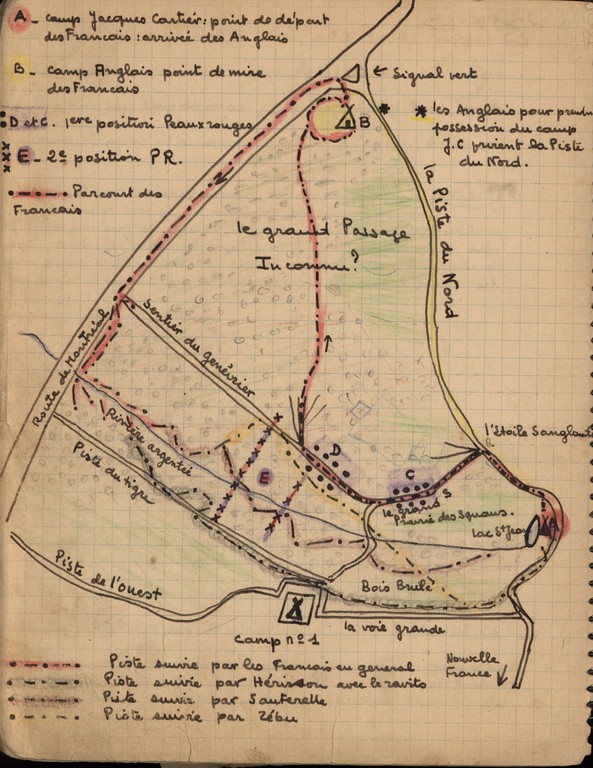 A - camp Jacques Cartier : point de départ
des Francais : arrivée des Anglais
B - camp Anglais point de mire
des Francais
D et C. 1ere position Peaux rouges
E - 2e position P.R.
Parcourt des
Francais
← Signal vert
* les Anglais pour prendre
possession du camp
J.C prirent la Piste
du Nord.
B
*
la Piste du Nord
le grand Passage
Inconnu?
Sentier du genévrier
Route de Montréal
Rivière argentée
Piste du tigre
l'étoile Sanglante
D
C
E
le grand S
Prairie des Squaws.
lac St Jean
A
Bois Brulé
Piste de l'ouest
Camp n°1
la voie grande
Nouvelle
France
Piste suivie par les Francais en general
Piste suivie par Hérisson avec le ravito
Piste suivie par Sauterelle
Piste suivie par Zébu